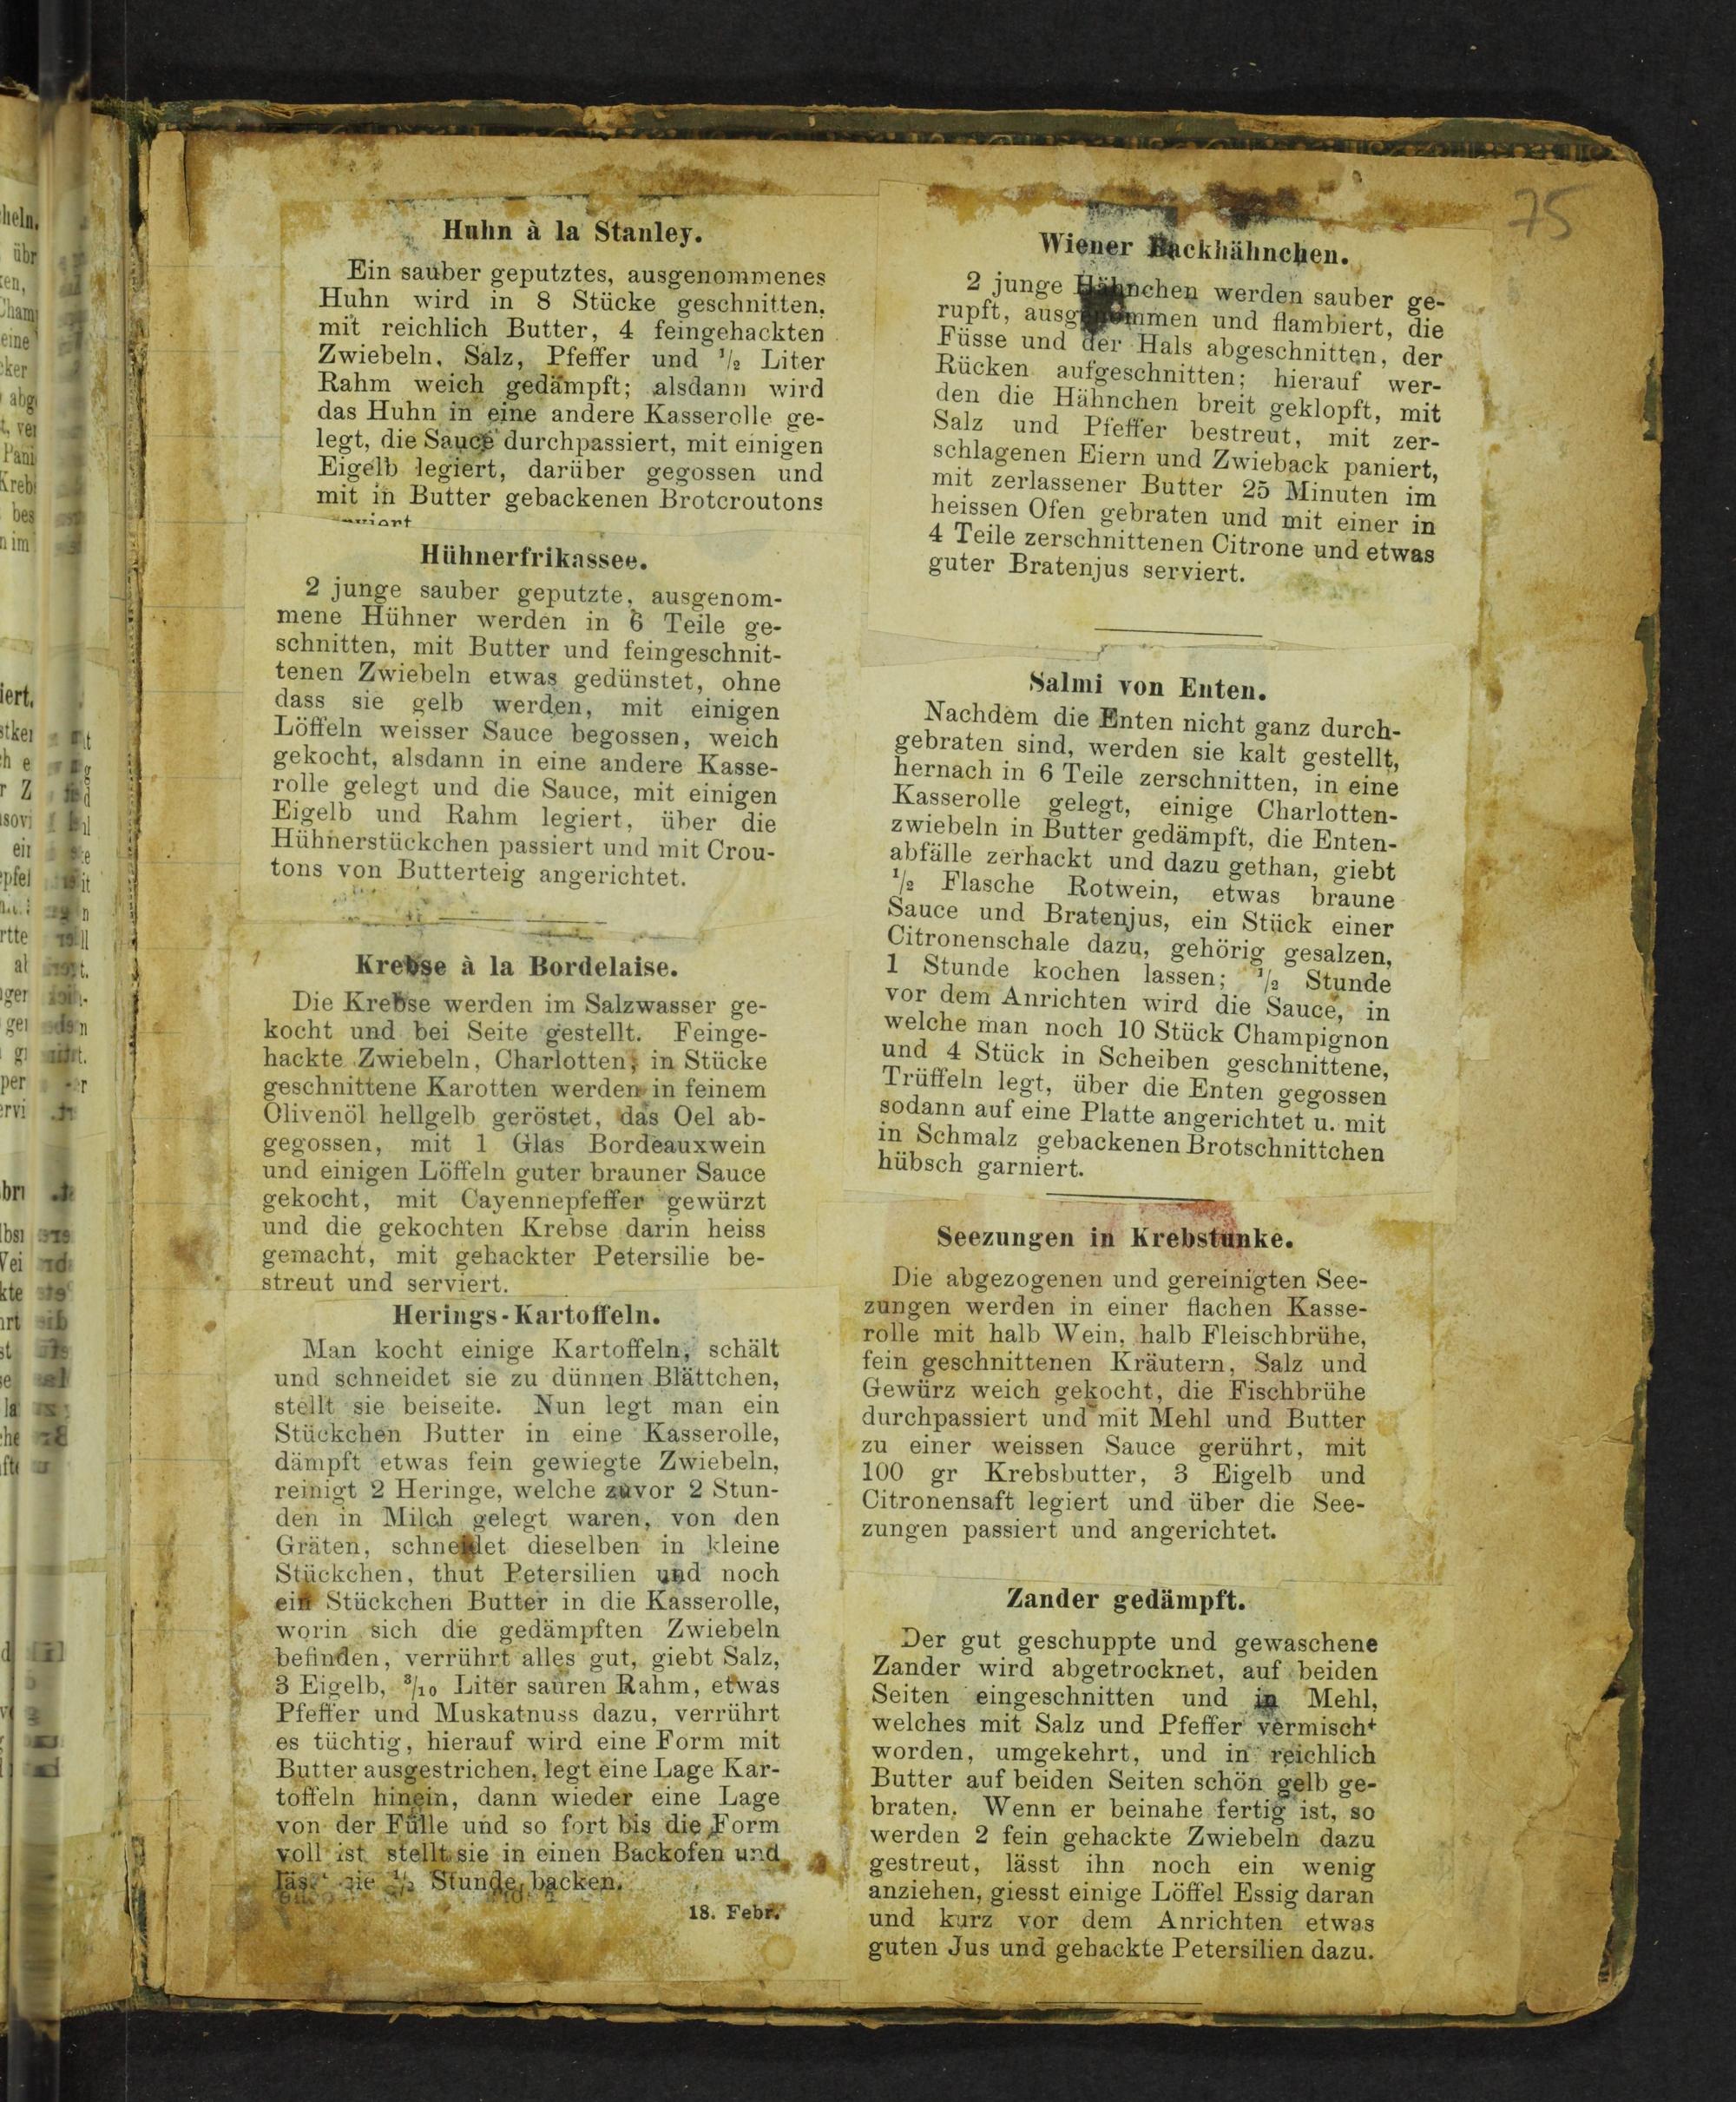 75
Huhn à la Stanley.
Ein sauber geputztes, ausgenommenes
Huhn wird in 8 Stücke geschnitten,
mit reichlich Butter, 4 feingehackten
Zwiebeln, Salz, Pfeffer und 1/2 Liter
Rahm weich gedämpft; alsdann wird
das Huhn in eine andere Kasserolle ge-
legt, die Sauce durchpassiert, mit einigen
Eigelb legiert, darüber gegossen und
mit in Butter gebackenen Brotcroutons
Hühnerfrikassee.
2 junge sauber geputzte, ausgenom-
mene Hühner werden in 6 Teile ge-
schnitten, mit Butter und feingeschnit-
tenen Zwiebeln etwas gedünstet, ohne
dass sie gelb werden, mit einigen
Löffeln weisser Sauce begossen, weich
gekocht, alsdann in eine andere Kasse-
rolle gelegt und die Sauce, mit einigen
Eigelb und Rahm legiert, über die
Hühnerstückchen passiert und mit Crou-
tons von Butterteig angerichtet.
Krebse à la Bordelaise.
Die Krebse werden im Salzwasser ge-
kocht und bei Seite gestellt. Feinge-
hackte Zwiebeln, Charlotten, in Stücke
geschnittene Karotten werden in feinem
Olivenöl hellgelb geröstet, das Oel ab-
gegossen, mit 1 Glas Bordeauxwein
und einigen Löffeln guter brauner Sauce
gekocht, mit Cayennepfeffer gewürzt
und die gekochten Krebse darin heiss
gemacht, mit gehackter Petersilie be-
streut und serviert.
Herings-Kartoffeln.
Man kocht einige Kartoffeln, schält
und schneidet sie zu dünnen Blättchen,
stellt sie beiseite. Nun legt man ein
Stückchen Butter in eine Kasserolle,
dämpft etwas fein gewiegte Zwiebeln,
reinigt 2 Heringe, welche zuvor 2 Stun-
den in Milch gelegt waren, von den
Gräten, schneidet dieselben in kleine
Stückchen, thut Petersilien und noch
ein Stückchen Butter in die Kasserolle,
worin sich die gedämpften Zwiebeln
befinden, verrührt alles gut, giebt Salz,
3 Eigelb, 3/10 Liter sauren Rahm, etwas
Pfeffer und Muskatnuss dazu, verrührt
es tüchtig, hierauf wird eine Form mit
Butter ausgestrichen, legt eine Lage Kar-
toffeln hinein, dann wieder eine Lage
von der Fülle und so fort bis die Form
voll ist, stellt sie in einen Backofen und
sie 1/2 Stunde backen.
18. Febr.
Wiener Backhähnchen.
2 junge Hähnchen werden sauber ge-
rupft, ausgenommen und flambiert, die
Füsse und der Hals abgeschnitten, der
Rücken aufgeschnitten; hierauf wer-
den die Hähnchen breit geklopft, mit
Salz und Pfeffer bestreut, mit zer-
schlagenen Eiern und Zwieback paniert,
mit zerlassener Butter 25 Minuten im
heissen Ofen gebraten und mit einer in
4 Teile zerschnittenen Citrone und etwas
guter Bratenjus serviert.
Salmi von Enten.
Nachdem die Enten nicht ganz durch-
gebraten sind, werden sie kalt gestellt,
hernach in 6 Teile zerschnitten, in eine
Kasserolle gelegt, einige Charlotten-
zwiebeln in Butter gedämpft, die Enten-
abfälle zerhackt und dazu gethan, giebt
1/2 Flasche Rotwein, etwas braune
Sauce und Bratenjus, ein Stück einer
Citronenschale dazu, gehörig gesalzen,
1 Stunde kochen lassen; 1/2 Stunde
vor dem Anrichten wird die Sauce, in
welche man noch 10 Stück Champignon
und 4 Stück in Scheiben geschnittene,
Trüffeln legt, über die Enten gegossen
sodann auf eine Platte angerichtet u. mit
in Schmalz gebackenen Brotschnittchen
hübsch garniert.
Seezungen in Krebstunke.
Die abgezogenen und gereinigten See-
zungen werden in einer flachen Kasse-
rolle mit halb Wein, halb Fleischbrühe,
fein geschnittenen Kräutern, Salz und
Gewürz weich gekocht, die Fischbrühe
durchpassiert und mit Mehl und Butter
zu einer weissen Sauce gerührt, mit
100 gr Krebsbutter, 3 Eigelb und
Citronensaft legiert und über die See-
zungen passiert und angerichtet.
Zander gedämpft.
Der gut geschuppte und gewaschene
Zander wird abgetrocknet, auf beiden
Seiten eingeschnitten und in Mehl,
welches mit Salz und Pfeffer vermischt
worden, umgekehrt, und in reichlich
Butter auf beiden Seiten schön gelb ge-
braten. Wenn er beinahe fertig ist, so
werden 2 fein gehackte Zwiebeln dazu
gestreut, lässt ihn noch ein wenig
anziehen, giesst einige Löffel Essig daran
und kurz vor dem Anrichten etwas
guten Jus und gehackte Petersilien dazu.